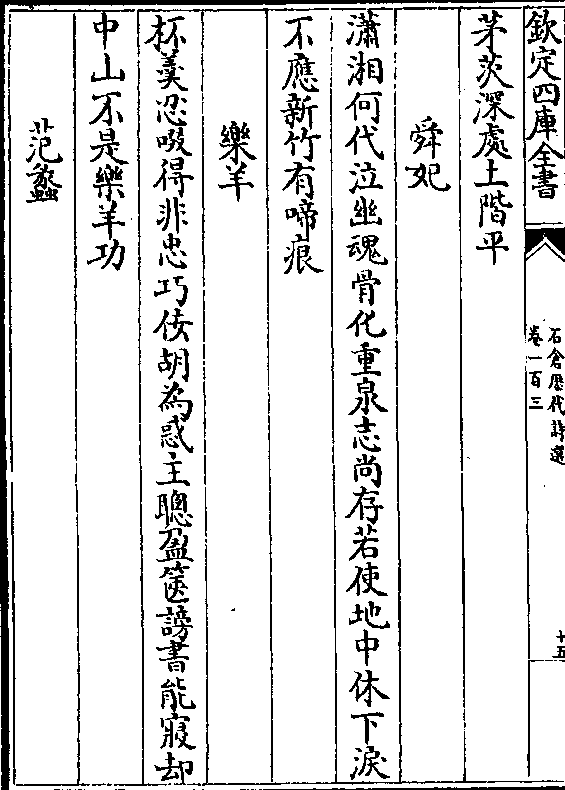 欽定四庫全書
石倉歷代詩選
卷一百三
十五
茅茨深處土階平
舜妃
瀟湘何代泣幽魂骨化重泉志尚存若使地中休下淚
不應新竹有啼痕
樂羊
杯羮忍啜得非忠巧佞胡為惑主聰盈篋謗書能寢却
中山不是樂羊功
范蠡